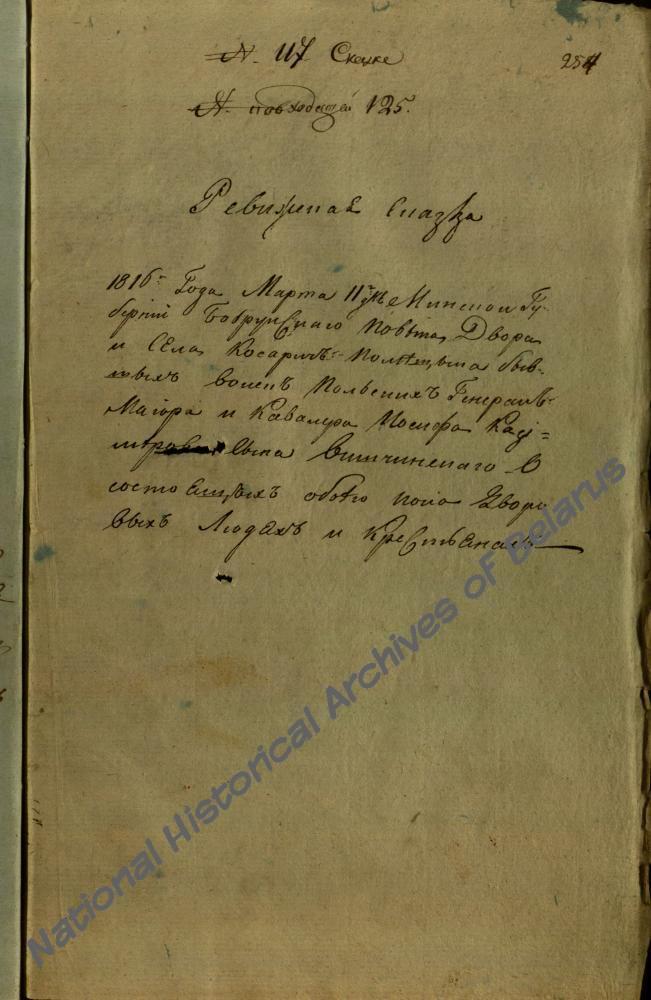 N. 117 Скаске
254
N. повходящей 125.
Ревизская Сказка
1816г Года Марта 11 дня Минской Гу-
бернiи Бобруйскаго Повѣта, Двора
и Села Косаричъ быв-
шихъ воискъ Польскихъ Генералъ-
Маiора и Кавалера Iосифа Кази=
сына в
состоящихъ обоего пола Дворо
выхъ Людяхъ и Крестьянахъ
National Historical Archives of Belarus